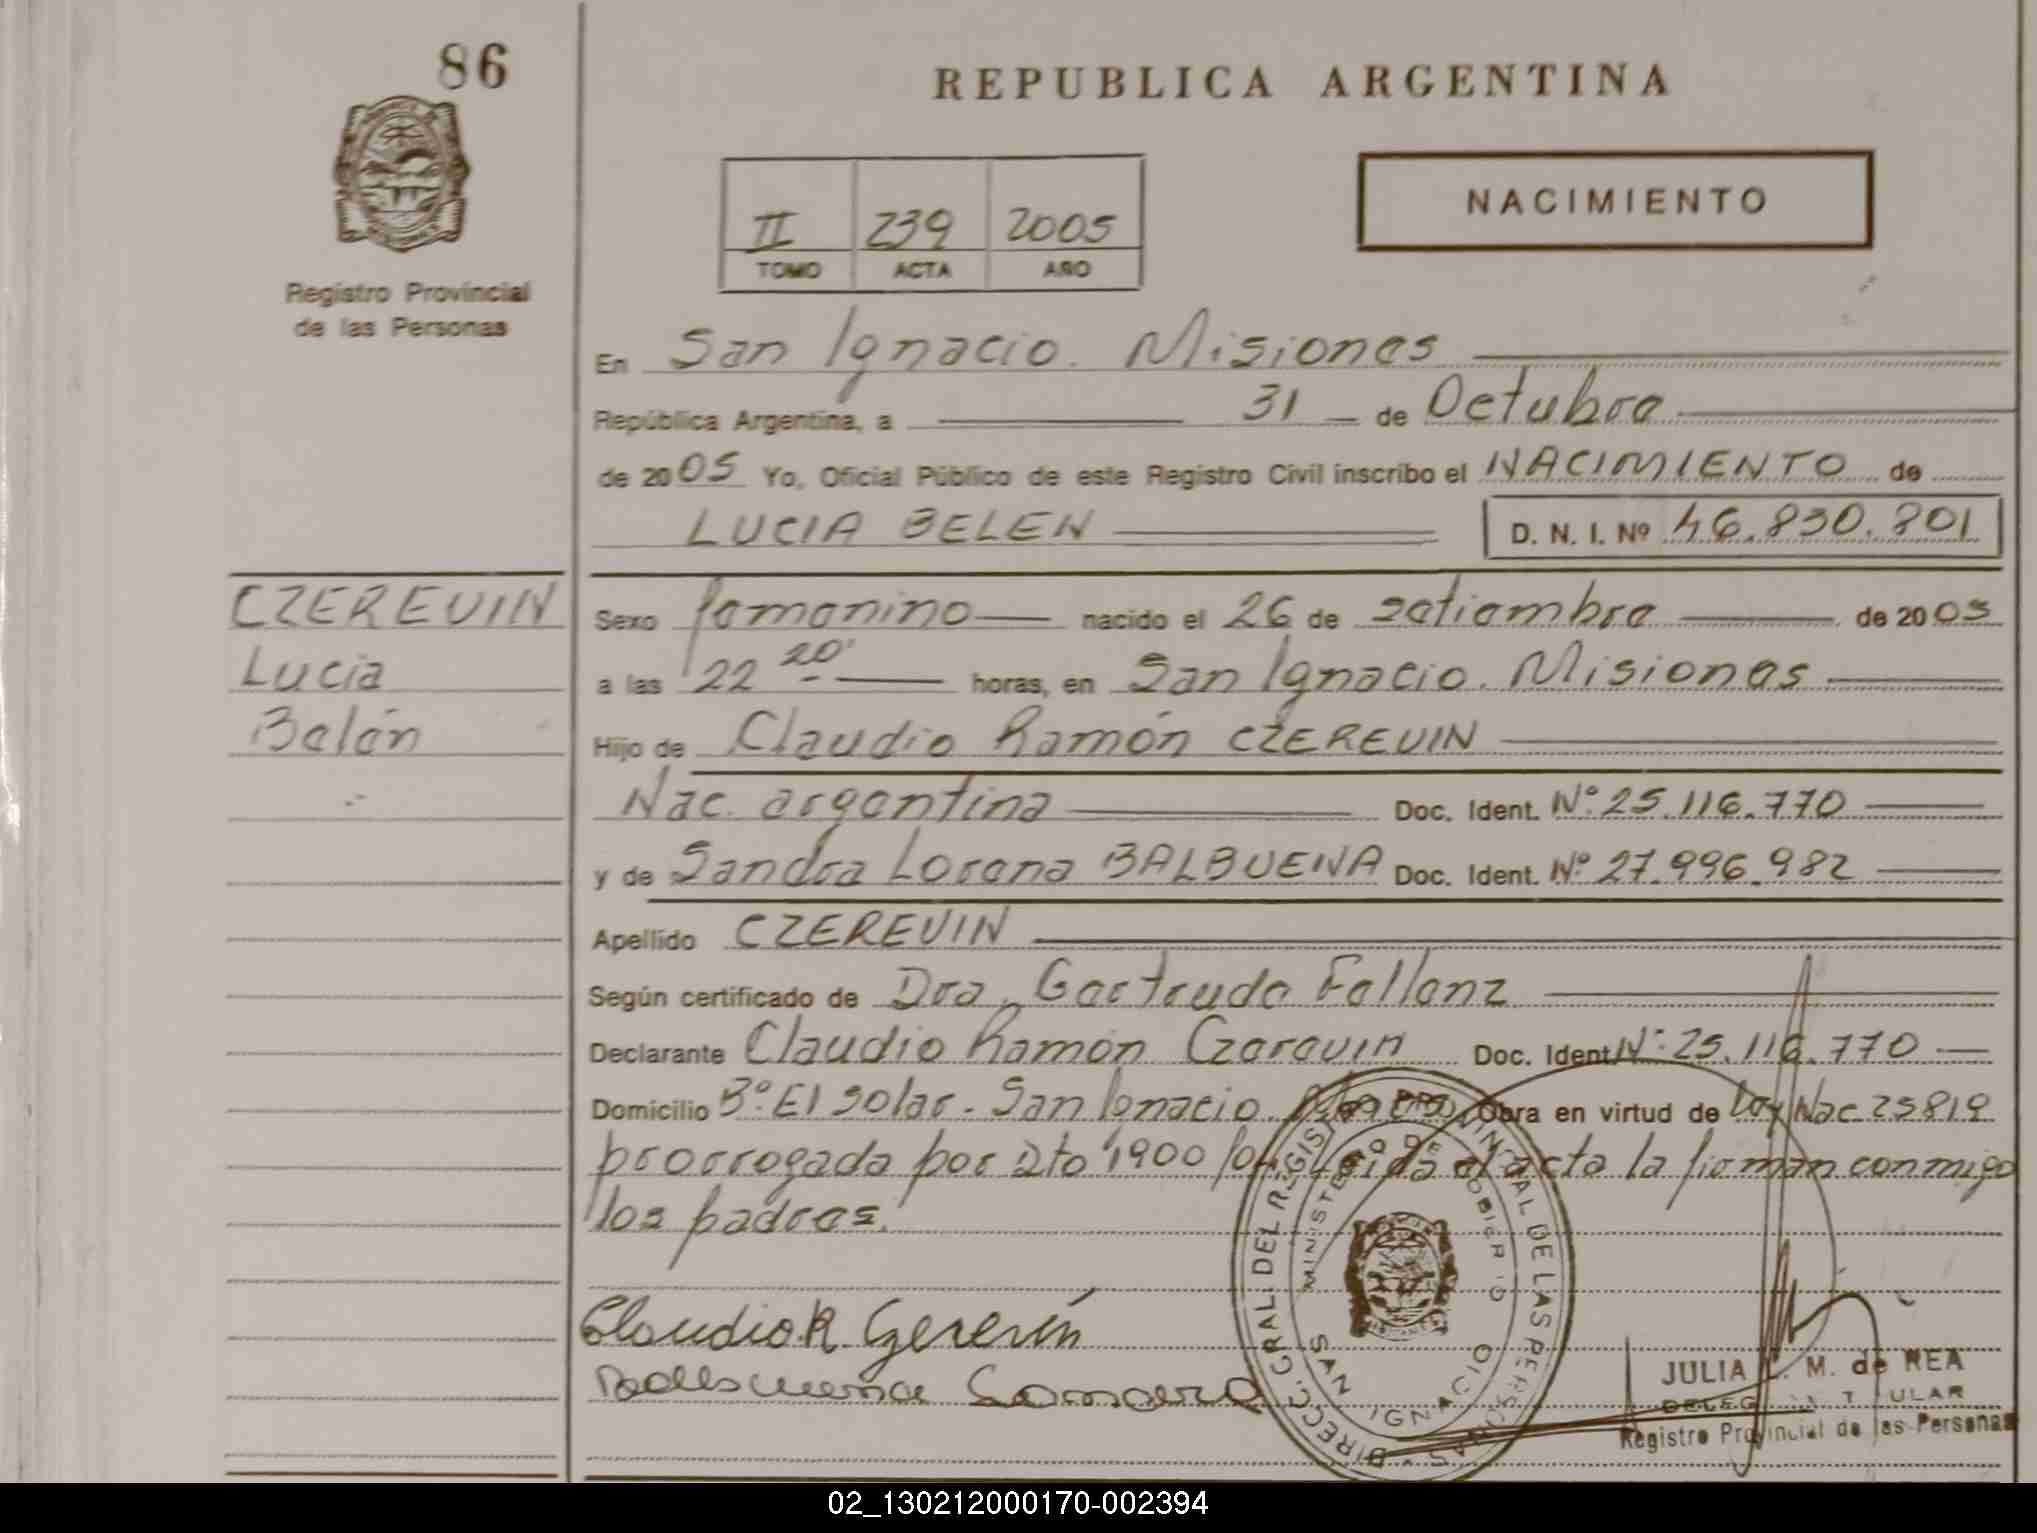 86
REPUBLICA ARGENTINA
NACIMIENTO
II 239 2005
TOMO ACTA AÑO
Registro Provincial
de las Personas
En San Ignacio. Misiones
República Argentina, a 31 de Octubre
de 2005 Yo, Oficial Público de este Registro Civil inscribo el NACIMIENTO de
LUCIA BELEN D. N. I. Nº 46.830.801
CZEREVIN
Lucia
Belén
Sexo femenino nacido el 26 de setiembre de 2005
a las 22 20' horas, en San Ignacio. Misiones
Hijo de Claudio Ramón CZEREVIN
Nac. argentina Doc. Ident. Nº 25.116.770
y de Sandra Lorena BALBUENA Doc. Ident. Nº 27.996.982
Apellido CZEREVIN
Según certificado de Dra. Gertrude Fellenz
Declarante Claudio Ramón Czerevin Doc. Ident. Nº 25.116.770
Domicilio Bº El Solar. San Ignacio. Obra en virtud de Ley Nac 25819
prorrogada por Dto 1900/04 Leida el acta la firman conmigo
los padres.
Claudio R Czerevin
DIRECC. GRAL. DEL REGISTRO PROVINCIAL DE LAS PERSONAS
MINISTERIO DE GOBIERNO
SAN IGNACIO
JULIA M. de REA
Registro Provincial de las Personas
02_130212000170-002394